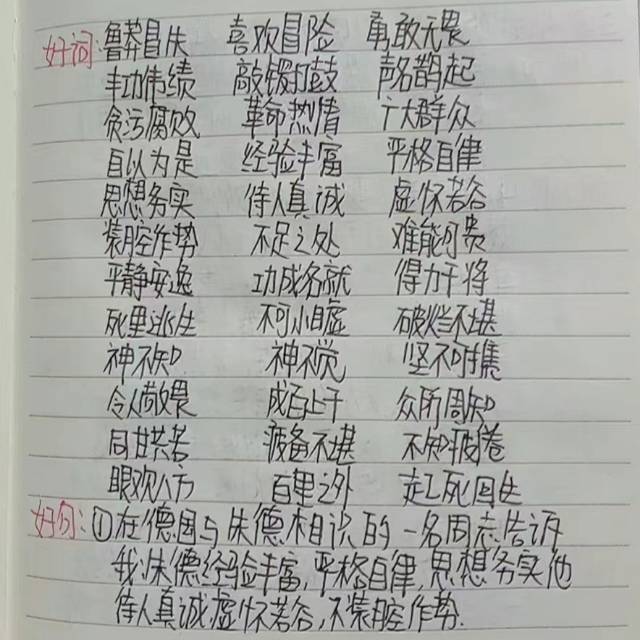 好词: 鲁莽冒失 喜欢冒险 勇敢无畏
丰功伟绩 敲锣打鼓 声名鹊起
贪污腐败 革命热情 广大群众
自以为是 经验丰富 严格自律
思想务实 待人真诚 虚怀若谷
装腔作势 不足之处 难能可贵
平静安逸 功成名就 得力干将
死里逃生 不可小瞧 破烂不堪
神不知 神不觉 坚不可摧
令人敬畏 成百上千 众所周知
同甘共苦 疲备不堪 不知疲倦
眼观八方 百里之外 起死回生
好句: ①在德国与朱德相识的一名同志告诉
我:朱德经验丰富,严格自律,思想务实他
待人真诚,虚怀若谷,不装腔作势.